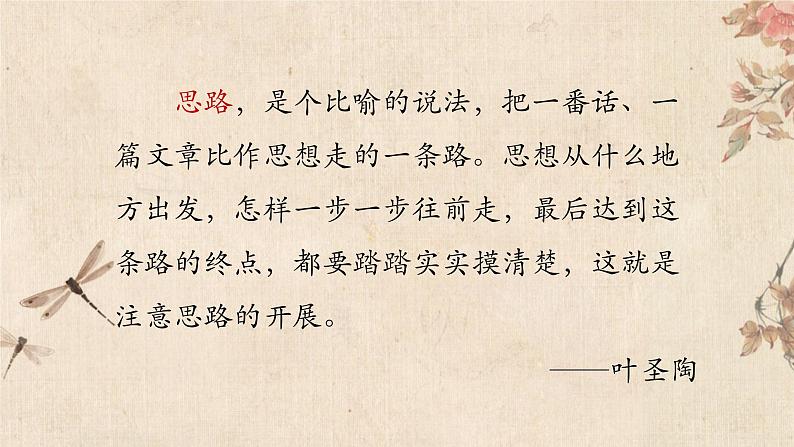 思路，是个比喻的说法，把一番话、一
篇文章比作思想走的一条路。思想从什么地
方出发，怎样一步一步往前走，最后达到这
条路的终点，都要踏踏实实摸清楚，这就是
注意思路的开展。
——叶圣陶